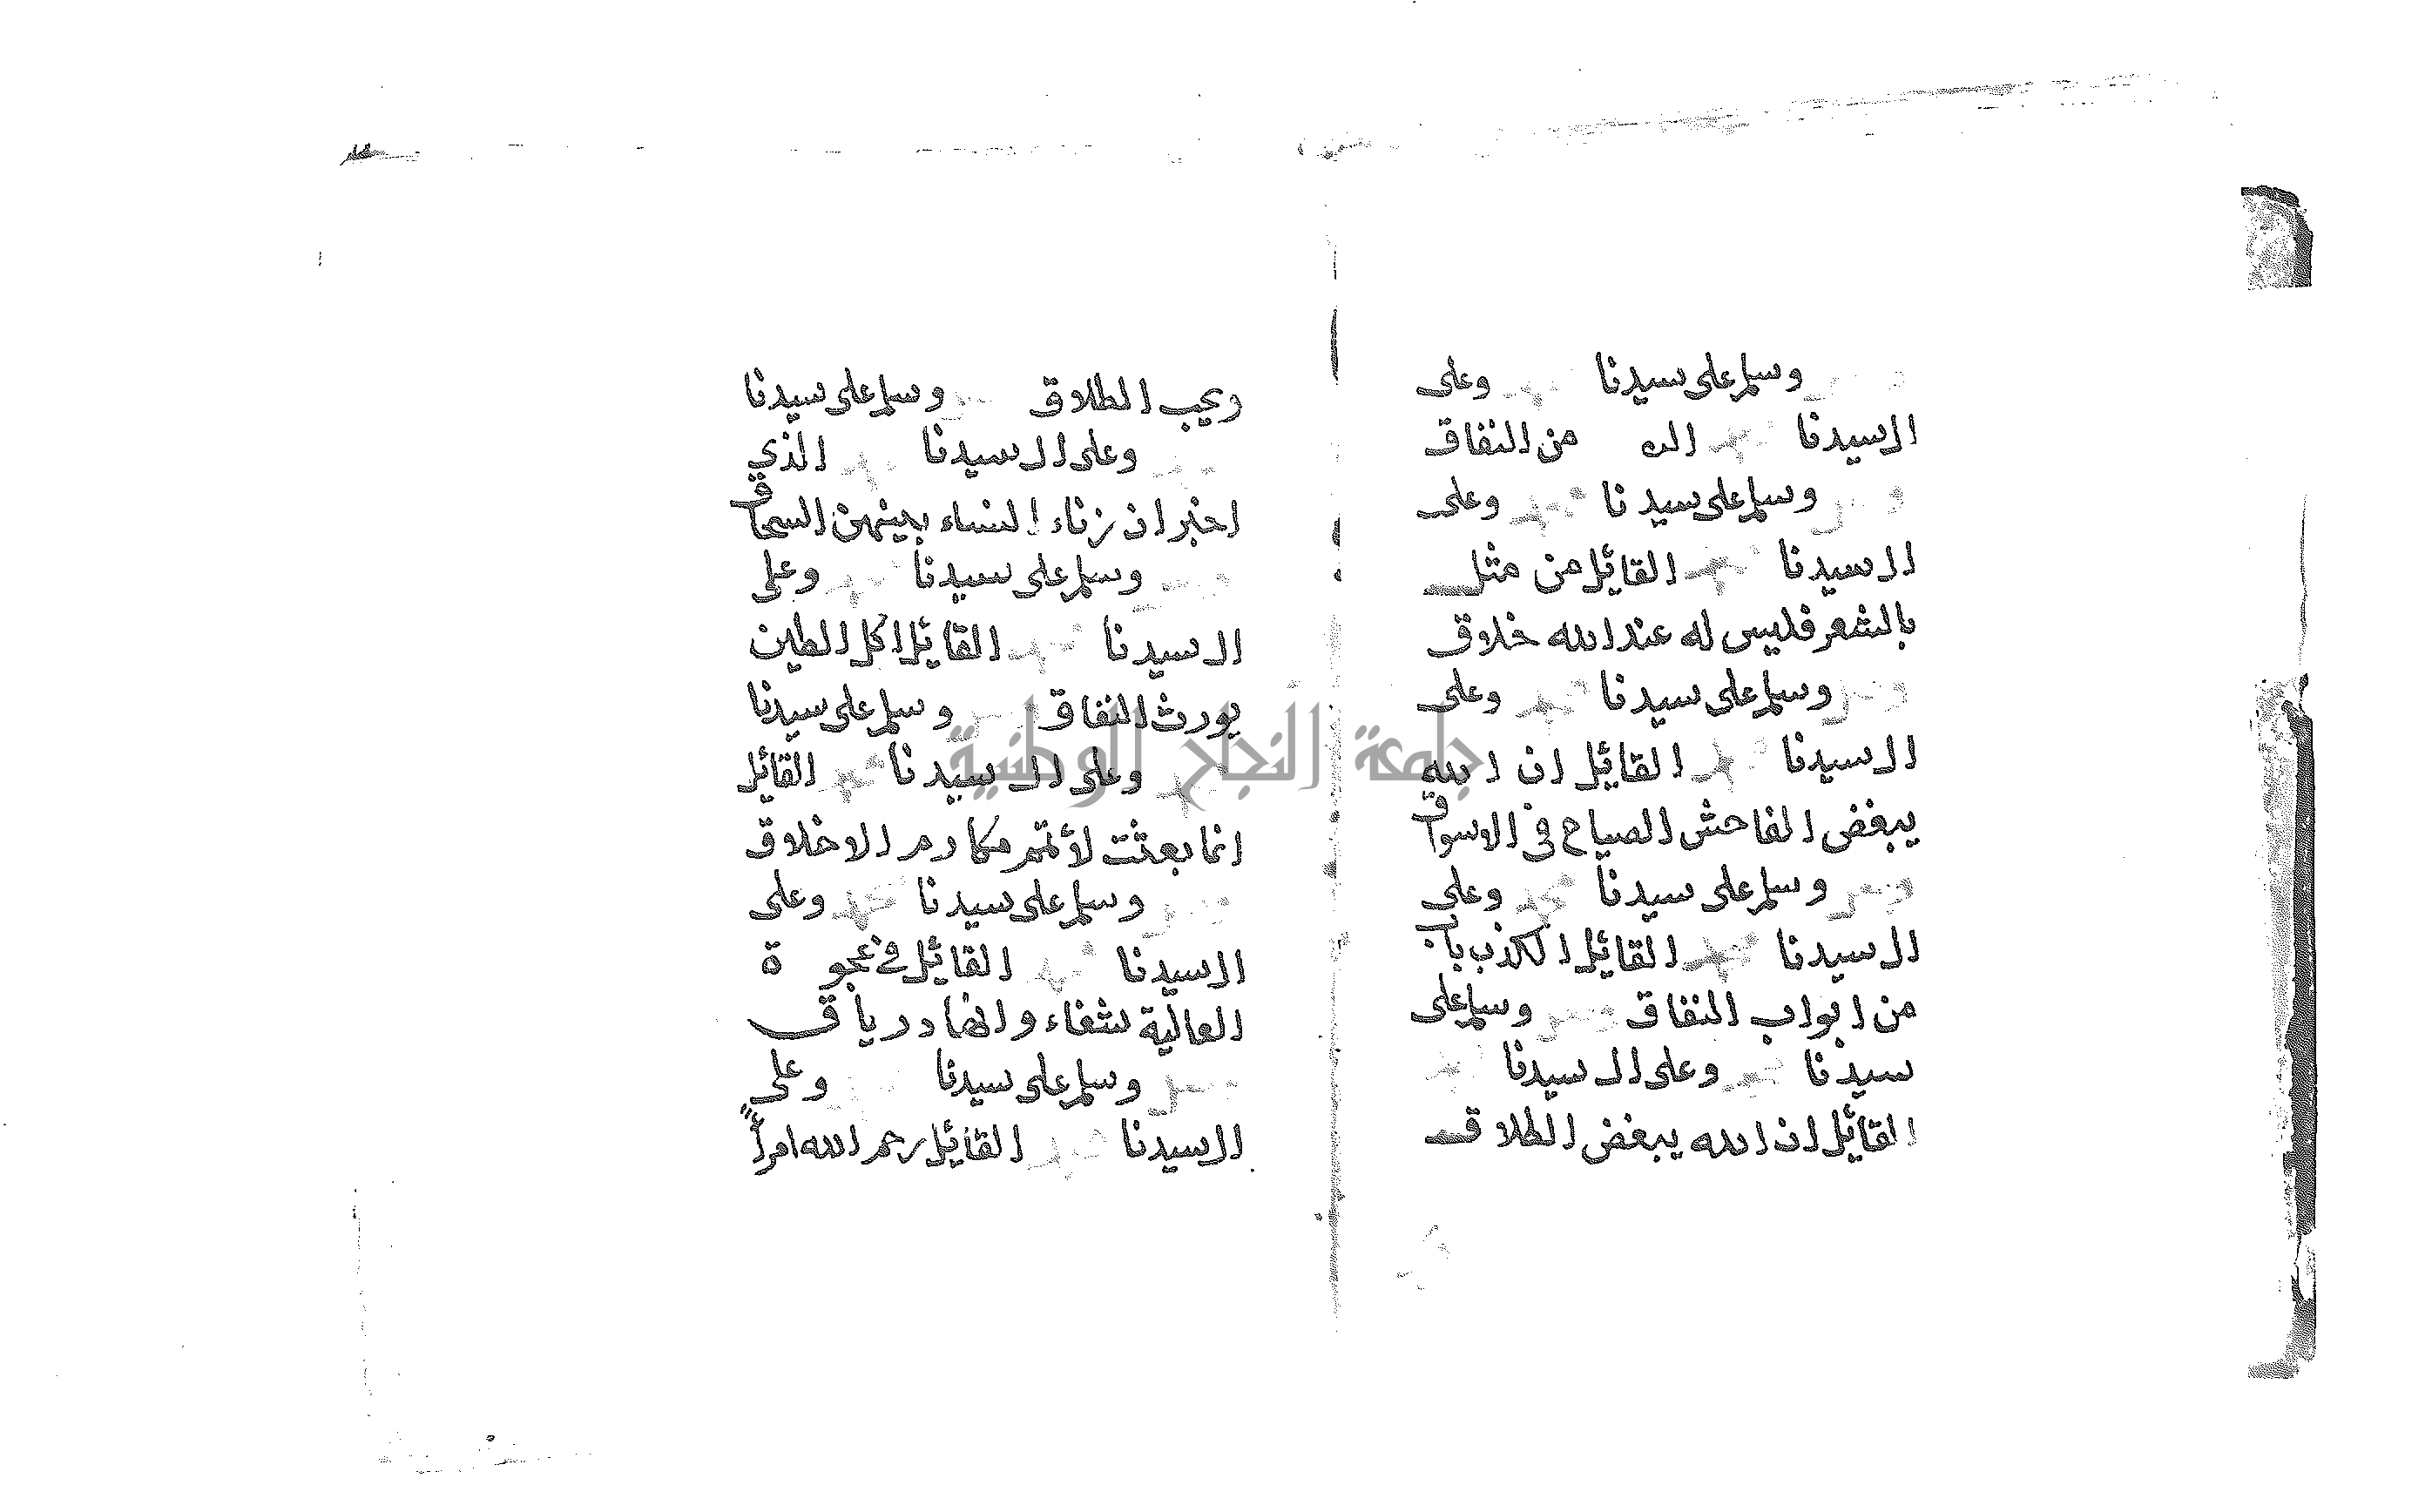 وسلم على سيدنا وعلى
ال سيدنا محمد من النفاق
وصل وسلم على سيدنا محمد وعلى
ال سيدنا محمد القائل من مثل
بالشعر فليس له عند الله خلاق
وصل وسلم على سيدنا محمد وعلى
ال سيدنا محمد القائل ان الله
يبغض الفاحش الصياح في الاسواق
وصل وسلم على سيدنا محمد وعلى
ال سيدنا محمد القائل الكذب باب
من ابواب النفاق وصل وسلم على
سيدنا محمد وعلى ال سيدنا محمد
القائل ان الله يبغض الطلاق
ويحب الطلاق وسلم على سيدنا
محمد وعلى ال سيدنا محمد الذي
اخبر ان زناء النساء بينهن السحاق
وسلم على سيدنا محمد وعلى
ال سيدنا محمد القائل اكل الطين
يورث النفاق وسلم على سيدنا
محمد وعلى ال سيدنا محمد القائل
انما بعثت لأتمم مكارم الاخلاق
وصل وسلم على سيدنا محمد وعلى
ال سيدنا محمد القائل في عجوة
العالية شفاء وانها درياق
وصل وسلم على سيدنا وعلى
ال سيدنا محمد القائل رحم الله امرأ
جامعة النجاح الوطنية